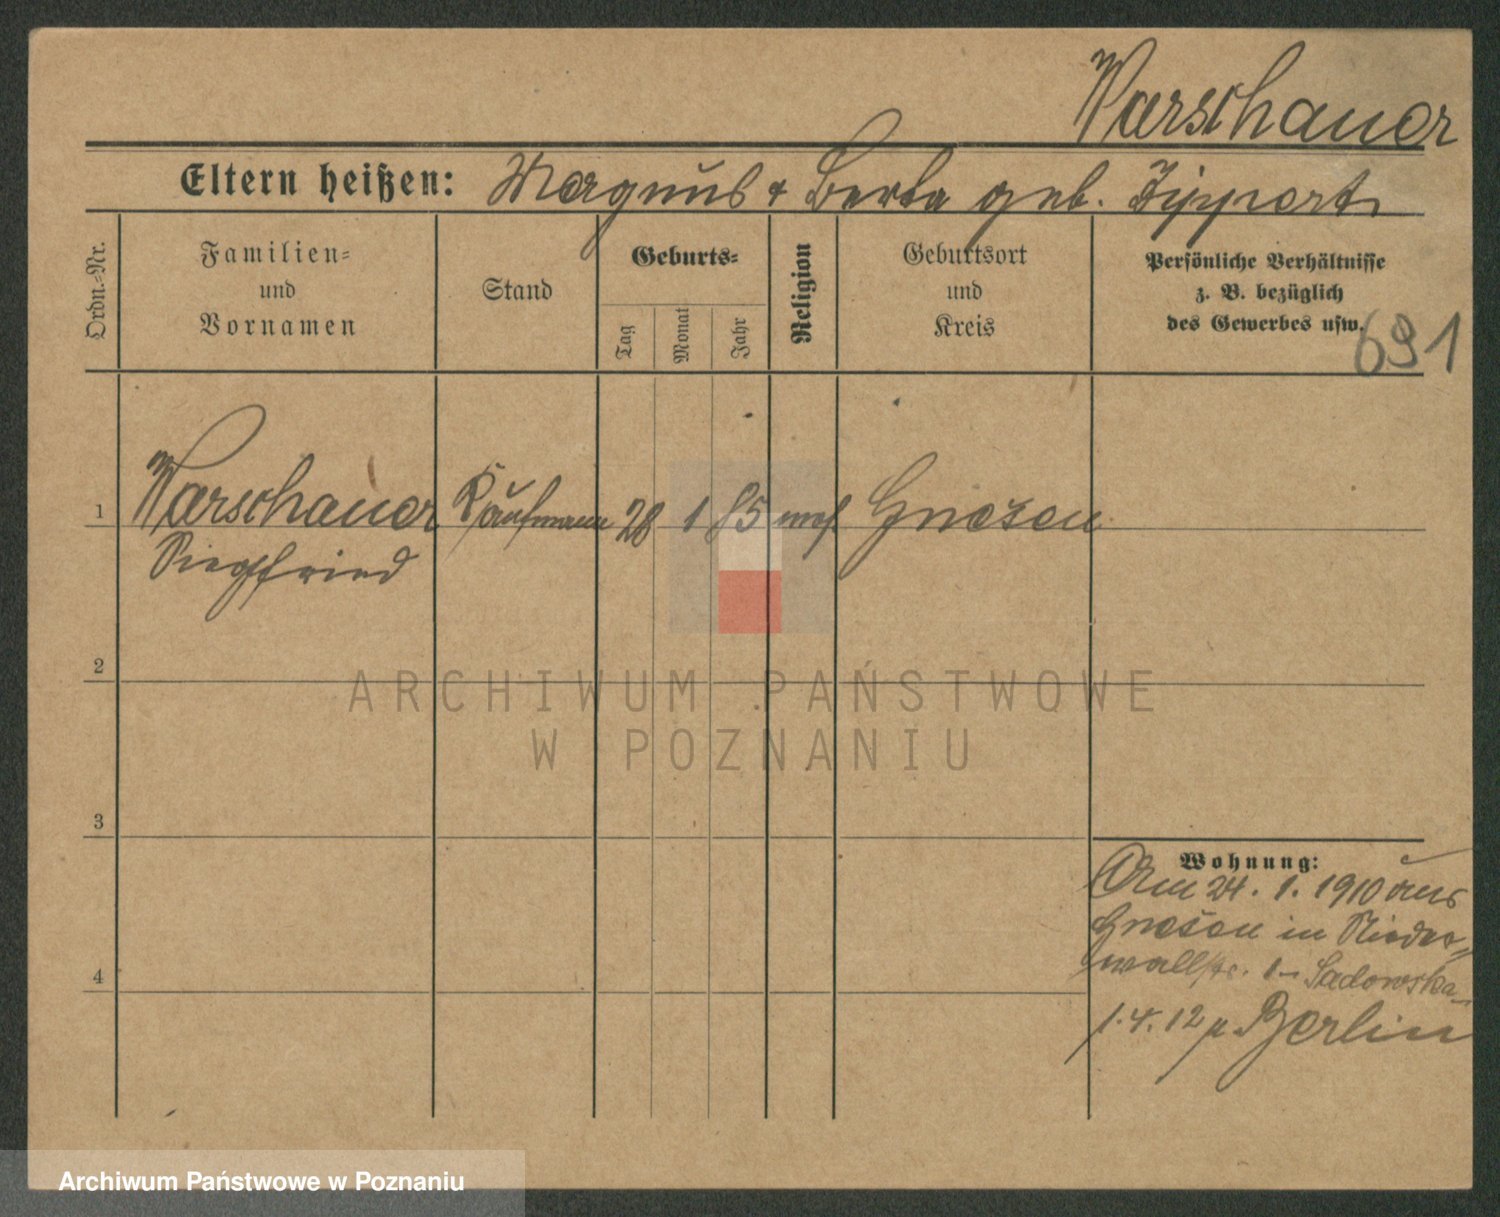 Warschauer
Eltern heißen: Magnus & Berta geb. Zippert
Ordn.-Nr.
Familien-
und
Vornamen
Stand
Geburts-
Tag
Monat
Jahr
Religion
Geburtsort
und
Kreis
Persönliche Verhältnisse
z. B. bezüglich
des Gewerbes usw.
691
1
Warschauer Kaufmann 28 1 85 mos. Gnesen
Siegfried
2
3
4
Wohnung:
Am 24. 1. 1910 aus
Gnesen in Nieder-
wallstr. 1 - Sadowska
1.4.12 n. Berlin
ARCHIWUM PAŃSTWOWE
W POZNANIU
Archiwum Państwowe w Poznaniu